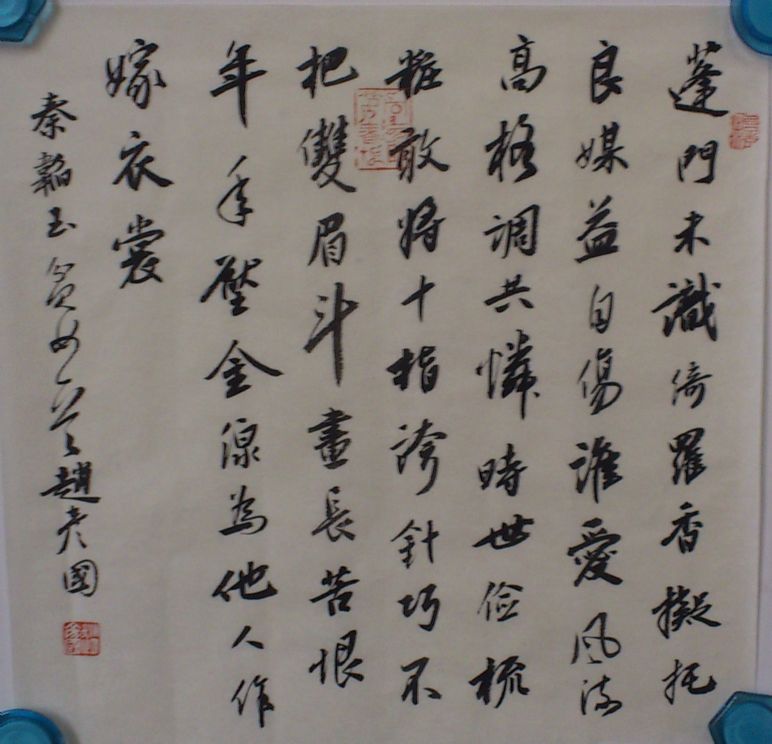 蓬門未識綺羅香擬托
良媒益自傷誰愛風流
高格調共憐時世儉梳
粧敢將十指誇針巧不
把雙眉斗畫長苦恨年
年手壓金線為他人作
嫁衣裳
秦韜玉貧女 趙彥國